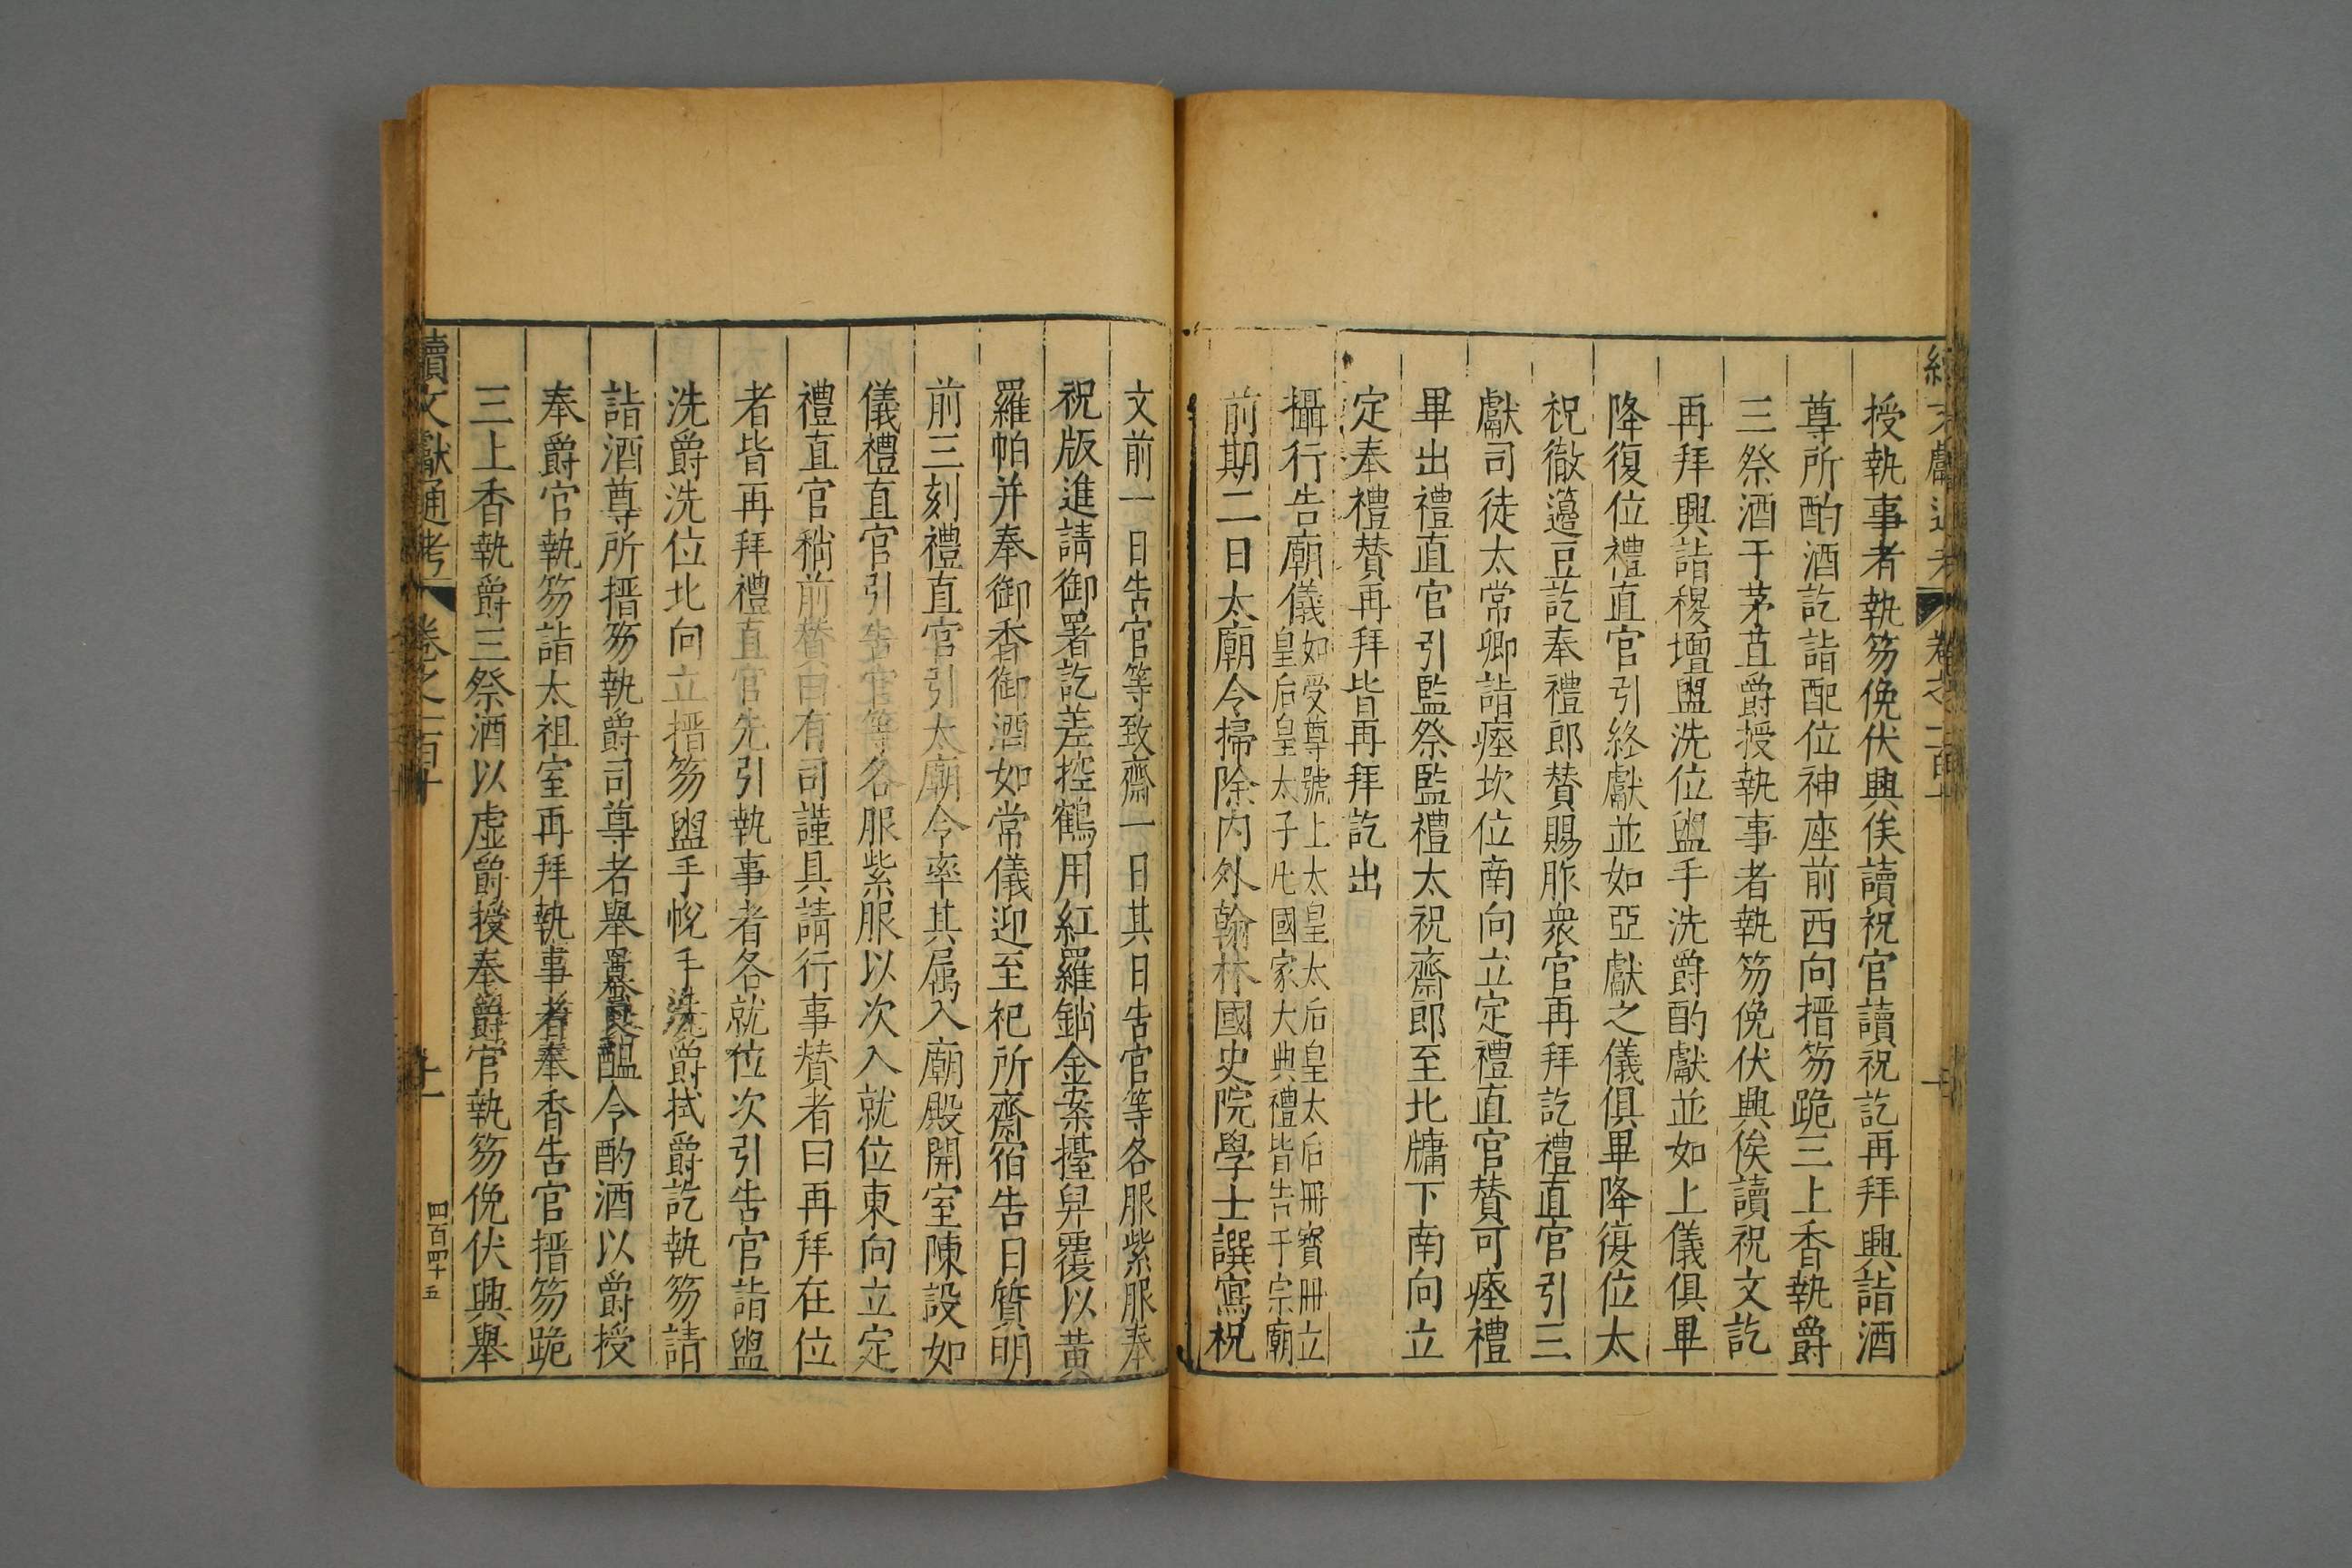 授執事者執笏俛伏興俟讀祝官讀祝訖再拜興詣酒
尊所酌酒訖詣配位神座前西向搢笏跪三上香執爵
三祭酒于茅苴爵授執事者執笏俛伏興俟讀祝文訖
再拜興詣稷壇盥洗位盥手洗爵酌獻並如上儀俱畢
降復位禮直官引終獻並如亞獻之儀俱畢降復位太
祝徹籩豆訖奉禮郎賛賜胙衆官再拜訖禮直官引三
獻司徒太常卿詣瘞坎位南向立定禮直官賛可瘞禮
畢出禮直官引監祭監禮太祝齋郎至北牗下南向立
定奉禮賛再拜皆再拜訖出
攝行告廟儀如受尊號上太皇太后皇太后冊寳冊立
皇后皇太子凡國家大典禮皆告于宗廟
前期二日太廟令掃除内外翰林國史院學士譔寫祝
文前一日告官等致齋一日其日告官等各服紫服奉
祝版進請御署訖差控鶴用紅羅銷金案擡舁覆以黄
羅帕并奉御香御酒如常儀迎至祀所齋宿告日質明
前三刻禮直官引太廟令率其属入廟殿開室陳設如
儀禮直官引告官等各服紫服以次入就位東向立定
禮直官稍前賛曰有司謹具請行事賛者曰再拜在位
者皆再拜禮直官先引執事者各就位次引告官詣盥
洗爵洗位北向立搢笏盥手帨手洗爵拭爵訖執笏請
詣酒尊所搢笏執爵司尊者舉羃良醖令酌酒以爵授
奉爵官執笏詣太祖室再拜執事者奉香告官搢笏跪
三上香執爵三祭酒以虚爵授奉爵官執笏俛伏興舉
續文獻通考 卷之一百十 十一 四百四十五